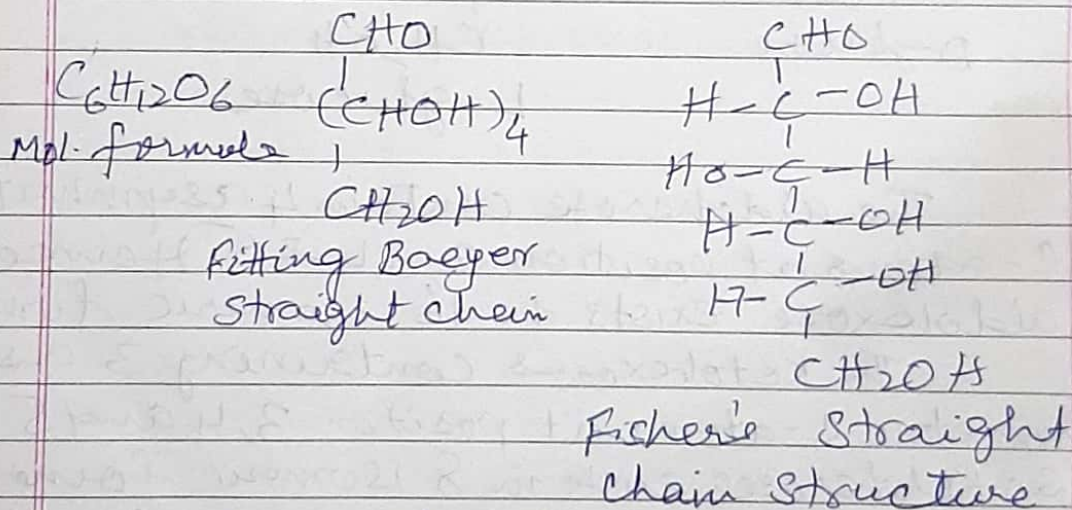 CHO
C6H12O6 (CHOH)4
Mol. formula
CH2OH
Fitting Baeyer
straight chain
CHO
H-C-OH
HO-C-H
H-C-OH
H-C-OH
CH2OH
Fisher's Straight
chain structure